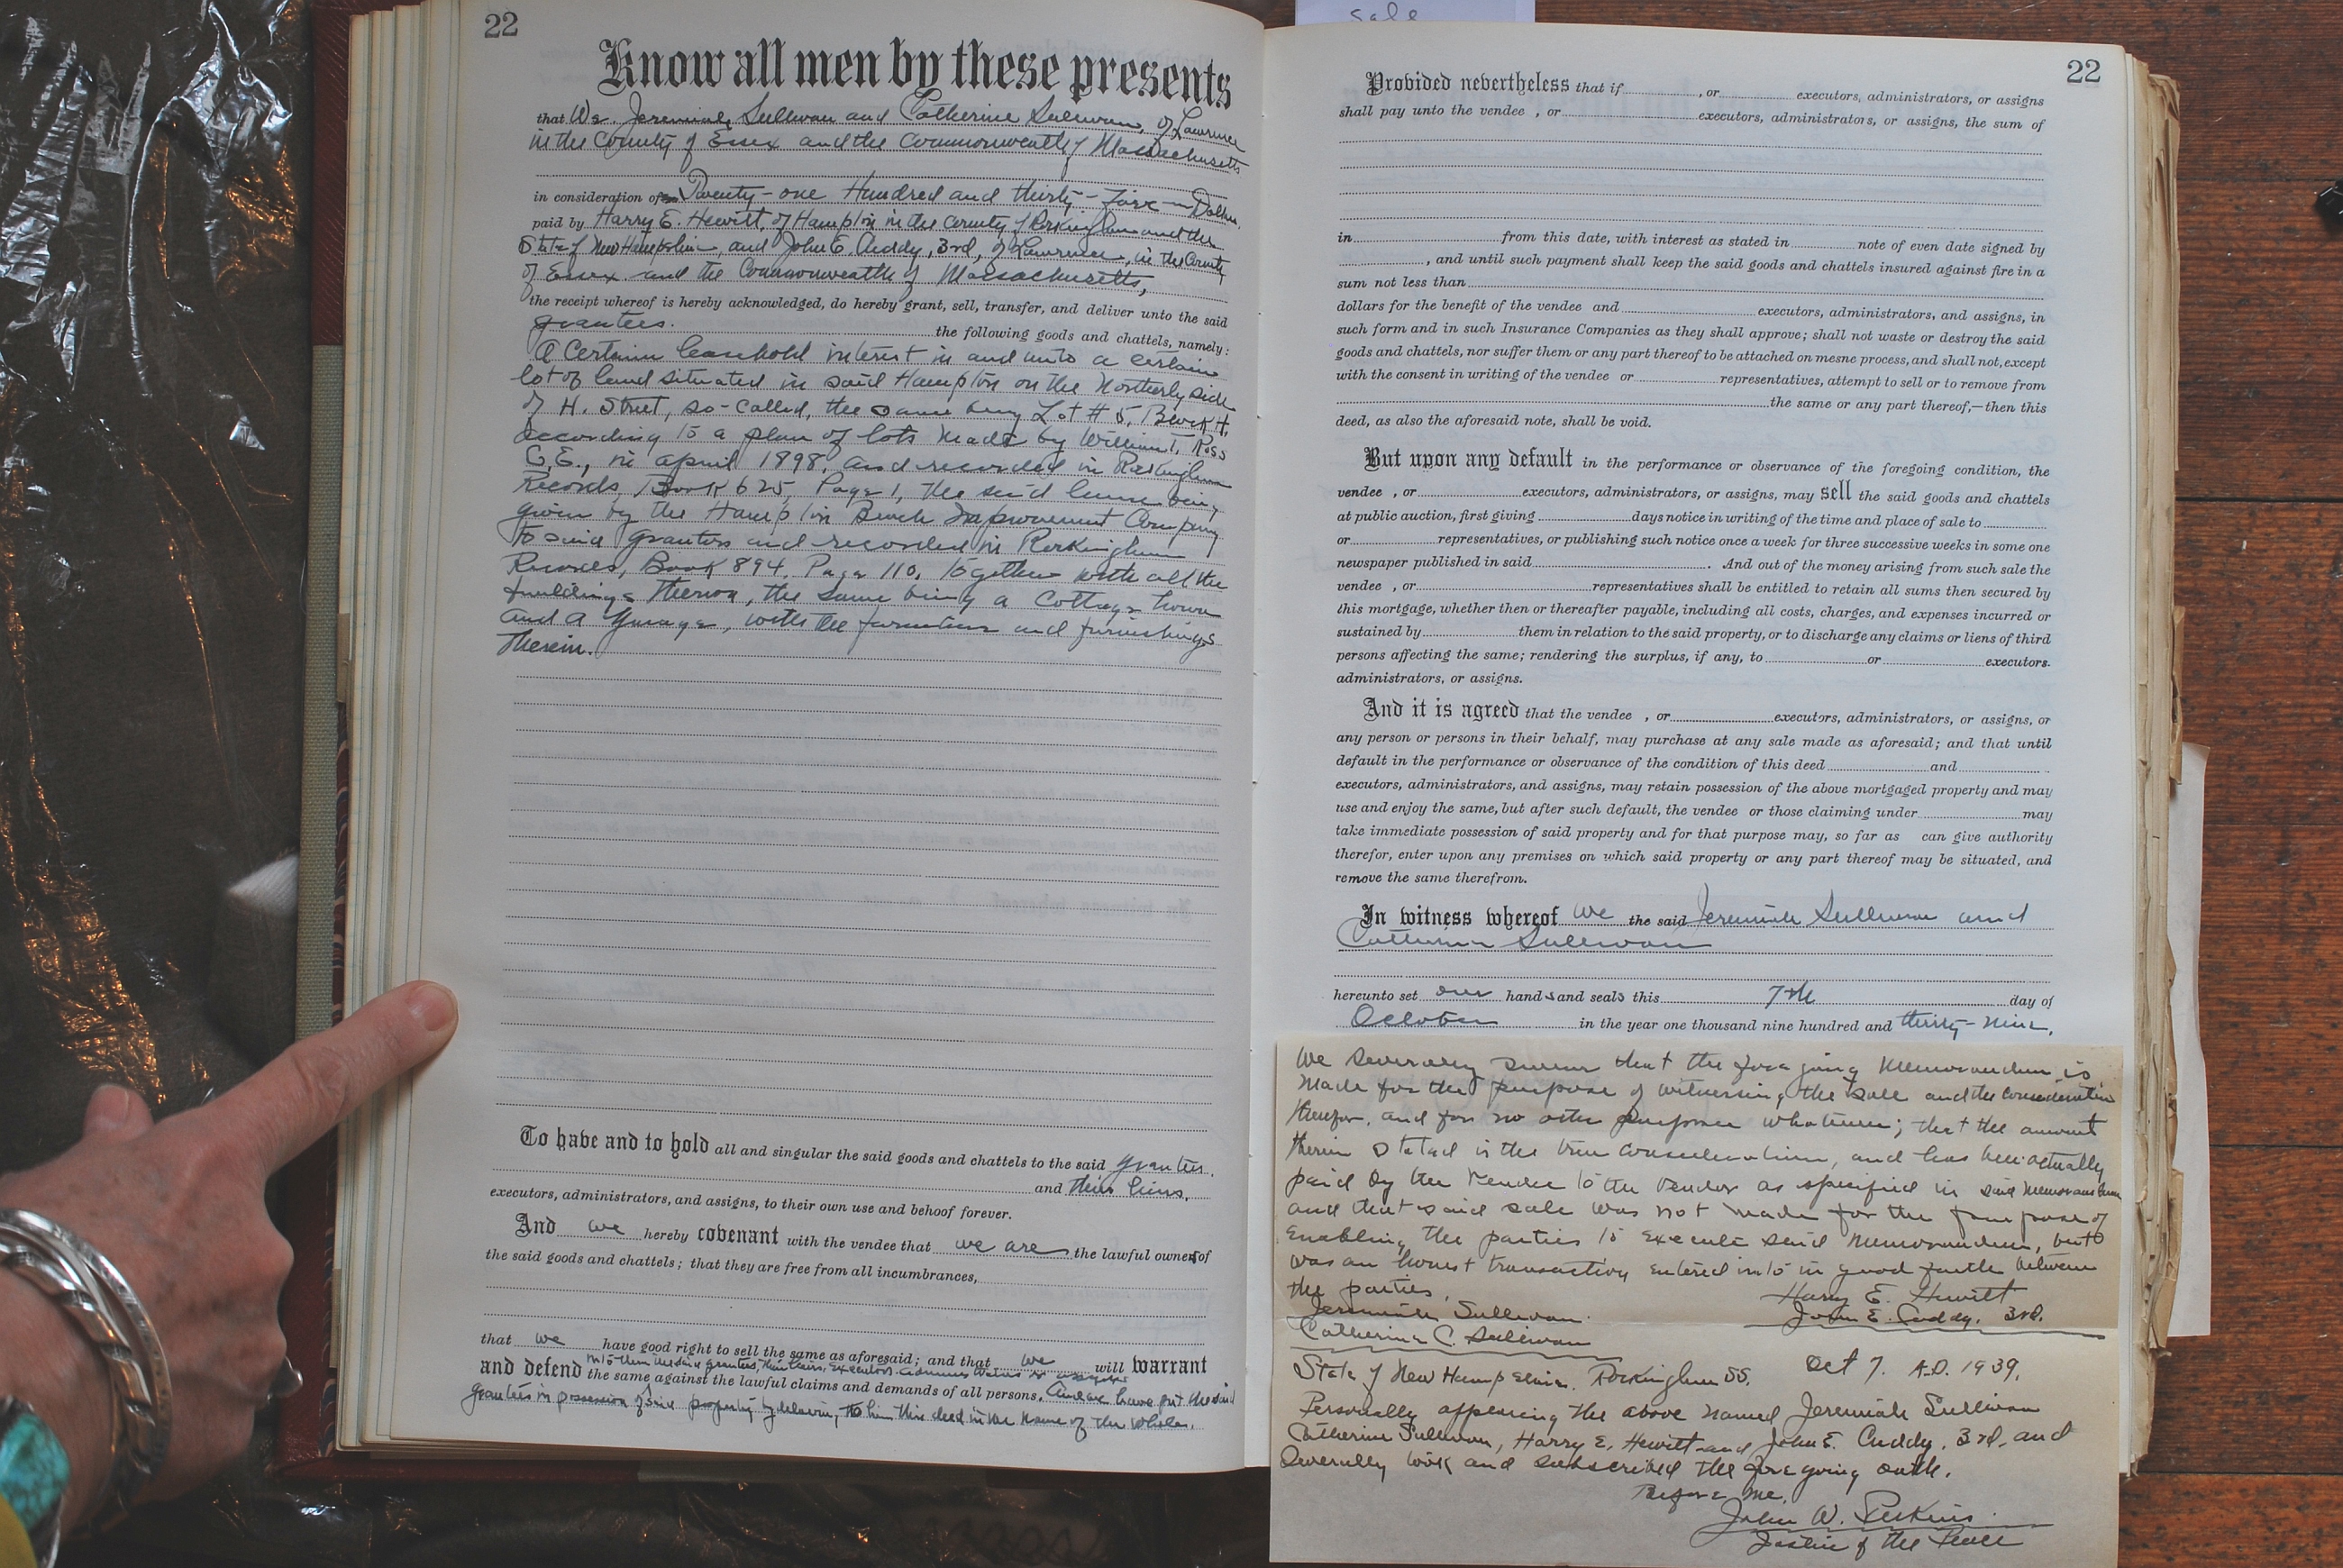 22
Know all men by these presents
that We, Jeremiah Sullivan and Catherine Sullivan, of Lawrence
in the County of Essex and the Commonwealth of Massachusetts
in consideration of Twenty-one Hundred and thirty-five Dollars
paid by Harry E. Hewitt, of Hampton in the County of Rockingham and the
State of New Hampshire, and John E. Cuddy, 3rd, of Lawrence, in the County
of Essex and the Commonwealth of Massachusetts,
the receipt whereof is hereby acknowledged, do hereby grant, sell, transfer, and deliver unto the said
grantees. the following goods and chattels, namely:
A Certain leasehold interest in and unto a certain
lot of land situated in said Hampton on the Northerly side
of H. Street, so-called, the same being Lot # 5, Block H,
according to a plan of lots made by William T. Ross
C.E., in april 1898, and recorded in Rockingham
Records, Book 625, Page 1, the said lease being
given by the Hampton Beach Improvement Company
to said grantors and recorded in Rockingham
Records, Book 894, Page 110, Together with all the
buildings thereon, the same being a Cottage house
and a Garage, with the furniture and furnishings
therein.
To have and to hold all and singular the said goods and chattels to the said grantees,
and their heirs,
executors, administrators, and assigns, to their own use and behoof forever.
And we hereby covenant with the vendee that we are the lawful owners of
the said goods and chattels; that they are free from all incumbrances,
that we have good right to sell the same as aforesaid; and that we will warrant
into them the said grantees, their heirs, executors, administrators &
and defend the same against the lawful claims and demands of all persons. And we have put the said
grantees in possession of said property by delivering to him this deed in the name of the whole.
sale
22
Provided nevertheless that if , or executors, administrators, or assigns
shall pay unto the vendee , or executors, administrators, or assigns, the sum of
in from this date, with interest as stated in note of even date signed by
, and until such payment shall keep the said goods and chattels insured against fire in a
sum not less than
dollars for the benefit of the vendee and executors, administrators, and assigns, in
such form and in such Insurance Companies as they shall approve; shall not waste or destroy the said
goods and chattels, nor suffer them or any part thereof to be attached on mesne process, and shall not, except
with the consent in writing of the vendee or representatives, attempt to sell or to remove from
the same or any part thereof,—then this
deed, as also the aforesaid note, shall be void.
But upon any default in the performance or observance of the foregoing condition, the
vendee , or executors, administrators, or assigns, may sell the said goods and chattels
at public auction, first giving days notice in writing of the time and place of sale to
or representatives, or publishing such notice once a week for three successive weeks in some one
newspaper published in said . And out of the money arising from such sale the
vendee , or representatives shall be entitled to retain all sums then secured by
this mortgage, whether then or thereafter payable, including all costs, charges, and expenses incurred or
sustained by them in relation to the said property, or to discharge any claims or liens of third
persons affecting the same; rendering the surplus, if any, to or executors.
administrators, or assigns.
And it is agreed that the vendee , or executors, administrators, or assigns, or
any person or persons in their behalf, may purchase at any sale made as aforesaid; and that until
default in the performance or observance of the condition of this deed and
executors, administrators, and assigns, may retain possession of the above mortgaged property and may
use and enjoy the same, but after such default, the vendee or those claiming under may
take immediate possession of said property and for that purpose may, so far as can give authority
therefor, enter upon any premises on which said property or any part thereof may be situated, and
remove the same therefrom.
In witness whereof we the said Jeremiah Sullivan and
Catherine Sullivan
hereunto set our hands and seals this 7th day of
October in the year one thousand nine hundred and thirty-nine.
We severally swear that the foregoing Memorandum is
made for the purpose of witnessing the sale and the consideration
therefor, and for no other purpose whatever; that the amount
therein stated is the true consideration, and has been actually
paid by the Vendee to the Vendor as specified in said Memorandum
and that said sale was not made for the purpose of
Enabling the parties to execute said Memorandum, but
was an honest transaction entered into in good faith between
the parties.
Harry E. Hewitt
Jeremiah Sullivan
John E. Cuddy, 3rd.
Catherine C. Sullivan
State of New Hampshire. Rockingham SS. Oct 7. A.D. 1939.
Personally appearing the above named Jeremiah Sullivan
Catherine Sullivan, Harry E. Hewitt and John E. Cuddy, 3rd, and
Severally took and subscribed the foregoing oath.
Before me,
John W. Perkins
Justice of the Peace